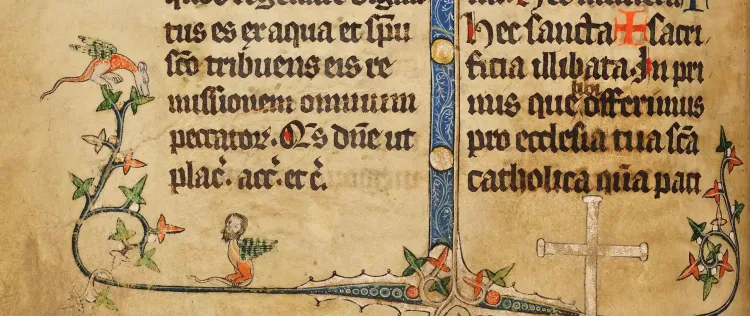 tus es ex aqua et sp̄u
sc̄o tribuens eis re
missionem omnium
peccator. Q̄s dn̄e ut
plac̄. acc̄. et c̄.
hec sancta ✠ sacri
ficia illibata. In pri
mis que tibi offerimus
pro ecclesia tua sc̄a
catholica quā paci